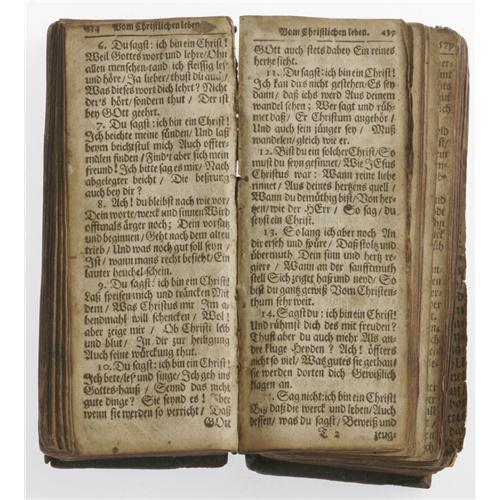 Vom Christlichen leben.
6. Du sagst: ich bin ein Christ!
Weil Gottes wort und lehre/ Ohn
allen menschen-tand ich fleissig les
und höre/ Ja lieber/ thust du auch/
Was dieses wort dich lehrt? Nicht
der's hört/ sondern thut/ Der ist
bey GOtt geehrt.
7. Du sagst: ich bin ein Christ!
Ich beichte meine sünden/ Und laß
beym beichtstul mich Auch offter-
malen finden/ Find't aber sich mein
freund! Ich bitte sag es mir/ Nach
abgelegter beicht/ Die beßrung
auch bey dir?
8. Ach! du bleibst nach wie vor/
Dein worte/ werck und sinnen Wird
offtmals ärger noch; Dein vorsatz
und beginnen/ Geht nach dem alten
trieb/ Und was noch gut soll seyn
Ist/ wann mans recht besicht/ Ein
lauter heuchel-schein.
9. Du sagst: ich bin ein Christ!
Laß speisen mich und träncken Mit
dem/ Was Christus mir Im a-
bendmahl will schencken/ Wol!
aber zeige mir/ Ob Christi leib
und blut/ In dir zur heiligung
Auch seine würckung thut.
10. Du sagst: ich bin ein Christ!
Ich bete/ les' und singe/ Ich geh ins
Gottes-hauß/ Seynd das nicht
gute dinge? Sie seynd es! Aber
wenn sie werden so verricht/ Daß
GOtt
Vom Christlichen leben. 437
GOtt auch stets dabey Ein reines
hertze sieht.
11. Du sagst: ich bin ein Christ!
Ich kan dirs nicht gestehen Es sey
dann/ daß ichs werd Aus deinem
wandel sehen; Wer sagt und rüh-
met daß/ Er Christum angehör/
Und auch sein jünger sey/ Muß
wandelen/ gleich wie er.
12. Bist du ein solcher Christ/ So
must du seyn gesinnet/ Wie JEsus
Christus war: Wann reine liebe
rinnet/ Aus deines hertzens quell/
Wann du demüthig bist/ Von her-
tzen/ wie der HErr/ So sag/ du
seyst ein Christ.
13. So lang ich aber noch An
dir erseh und spüre/ Daß stoltz und
übermuth Dein sinn und hertz re-
giere/ Wann an der sanfftmuth
stell Sich zeiget haß und neid/ So
bist du gantz gewiß Vom Christen-
thum sehr weit.
14. Sagst du: ich bin ein Christ!
Und rühmst dich des mit freuden?
Thust aber du auch mehr Als an-
dre kluge Heyden? Ach! öffters
nicht so viel/ Was gutes sie gethan
sie werden dorten dich Gewißlich
klagen an.
15. Sag nicht: ich bin ein Christ!
Biß daß die werck und leben/ Auch
dessen/ was du sagst/ Beweiß und
T 2 zeug-